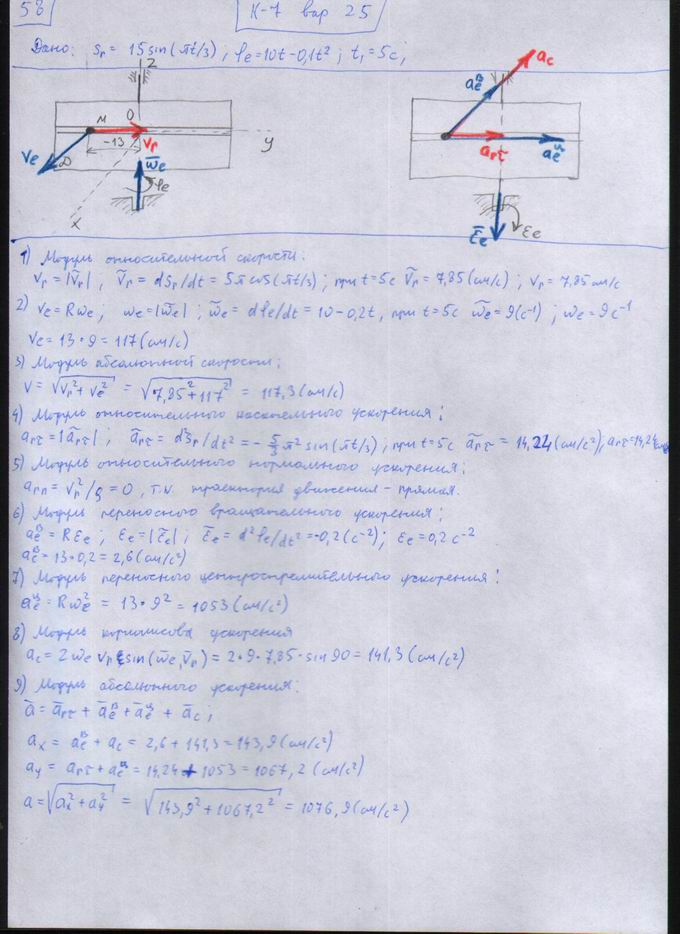 58
К-7 вар 25
Дано: Sr = 15 sin(πt/3); φe = 10t - 0,1t²; t₁ = 5c;
z
M
O
Vr
y
-13
Ve
ω̄e
φe
x
ac
aeᴮ
arτ
aeᶸ
ε̄e
εe
1) Модуль относительной скорости:
Vr = |Ṽr|, Ṽr = dSr/dt = 5π cos(πt/3); при t=5c Ṽr = 7,85 (см/с); Vr = 7,85 см/с
2) Ve = Rωe; ωe = |ω̃e|; ω̃e = dφe/dt = 10 - 0,2t, при t=5c ω̃e = 9 (c⁻¹); ωe = 9 c⁻¹
Ve = 13 • 9 = 117 (см/с)
3) Модуль абсолютной скорости:
V = √Vr² + Ve² = √7,85² + 117² = 117,3 (см/с)
4) Модуль относительного касательного ускорения:
arτ = |ãrτ|; ãrτ = d²Sr/dt² = - 5/3 π² sin(πt/3); при t=5c ãrτ = 14,24 (см/с²), arτ = 14,24 см/с²
5) Модуль относительного нормального ускорения:
arn = Vr²/ρ = 0, т.к. траектория движения - прямая.
6) Модуль переносного вращательного ускорения:
aeᴮ = Rεe; εe = |ε̃e|; ε̃e = d²φe/dt² = -0,2 (c⁻²); εe = 0,2 c⁻²
aeᴮ = 13 • 0,2 = 2,6 (см/с²)
7) Модуль переносного центростремительного ускорения:
aeᶸ = Rωe² = 13 • 9² = 1053 (см/с²)
8) Модуль кориолисова ускорения
ac = 2ωe Vr sin(ω̄e, V̄r) = 2 • 9 • 7,85 • sin 90 = 141,3 (см/с²)
9) Модуль абсолютного ускорения:
ā = ārτ + āeᴮ + āeᶸ + āc;
ax = aeᴮ + ac = 2,6 + 141,3 = 143,9 (см/с²)
ay = arτ + aeᶸ = 14,24 + 1053 = 1067,2 (см/с²)
a = √ax² + ay² = √143,9² + 1067,2² = 1076,9 (см/с²)